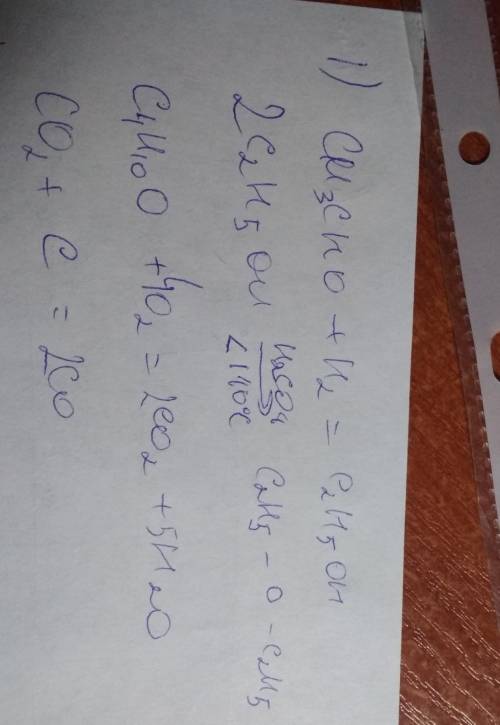 1) CH₃CHO + H₂ = C₂H₅OH
2C₂H₅OH H₂SO₄ <140°C C₂H₅ - O - C₂H₅
C₄H₁₀O + 4O₂ = 2CO₂ + 5H₂O
CO₂ + C = 2CO